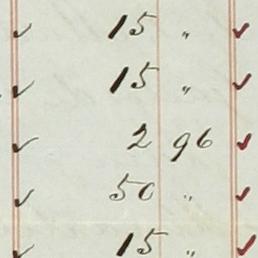 ✓ 15 „ ✓
✓ 15 „ ✓
✓ 2 96 ✓
✓ 50 „ ✓
✓ 15 „ ✓